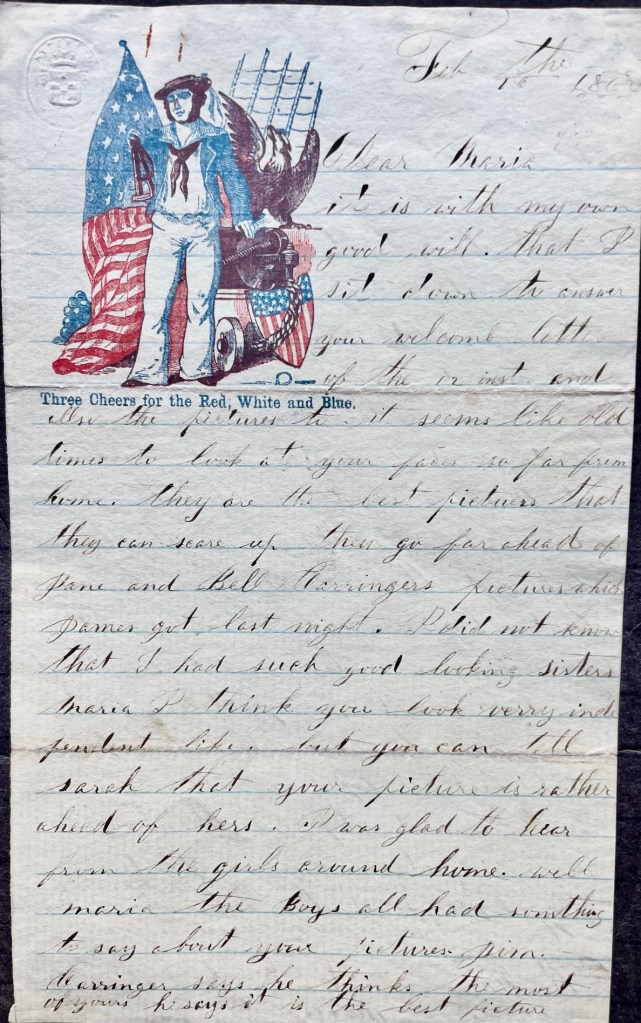 Feb 10 the 186
Dear Maria
it is with my own
good will. that I
sit down to answer
your welcome lette
of the inst. and
Also the pictures to. it seems like old
times to look at your faces so far from
home. they are the best pictuers that
they can scare up they go far ahead of
Jane and Bell Carringers pictures which
James got last night. I did not know
that I had such good looking sisters
Maria I think you look verry inde
pendent like. but you can tell
sarah that your picture is rather
ahead of hers. I was glad to hear
from the girls around home. well
maria the Boys all had somthing
to say about your pictures.
Carringer says he thinks the most
of yours he says it is the best picture
Three Cheers for the Red, White and Blue.